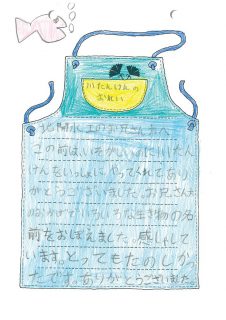 川たんけんの
おれい
北関水工のお兄さん方へ
この前は、いそがしい中に川たん
けんをいっしょにやってくれてあり
がとうございました。お兄さん方
のおかげでいろいろな生き物の名
前をおぼえました。感しゃして
います。とってもたのしかっ
たです。ありがとうございました。